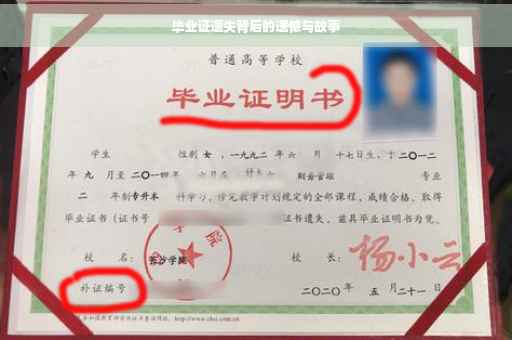 毕业证遗失背后的遗憾与故事
普通高等学校
毕业证明书
学生 性别 女，一九九二年 六 月 十七日生，于 二〇一二
年 九 月至 二〇一四 年 六月在 财务管理 专业
二 年制 专升本 科学习，修完教学计划规定的全部课程，成绩合格，取得
毕业证书（证书号 证书遗失，兹具毕业证明书为凭。
校 名： 长沙学院 校 长： 杨小云
补证编号 二〇二〇年 五 月 二十一 日